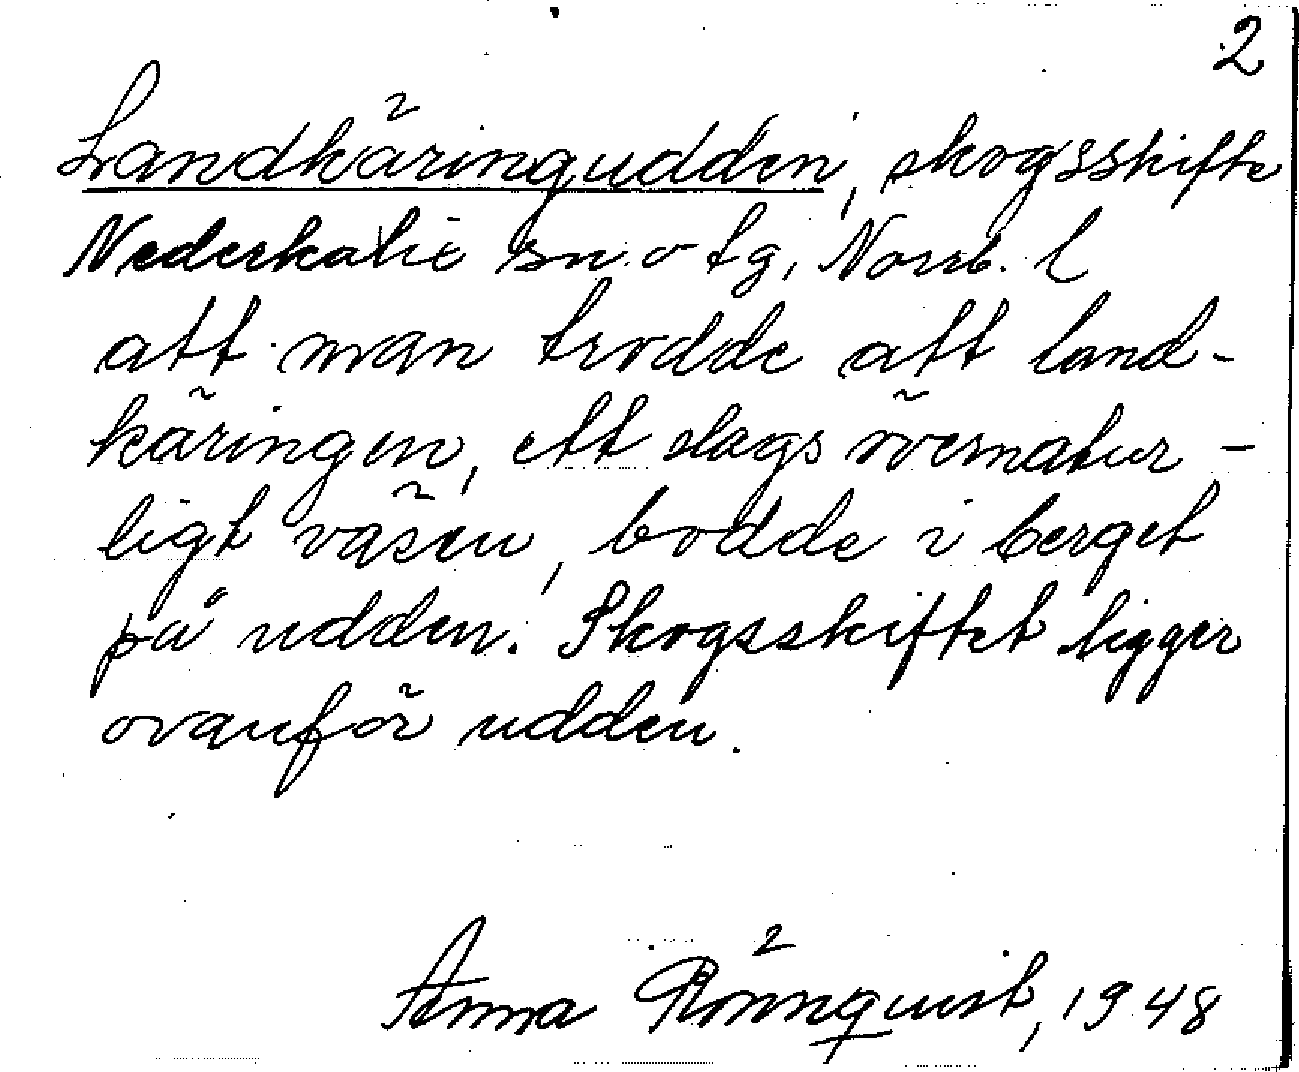 2
Landkäringudden, skogsskifte
Nederkalix sn o tg, Norrb. l
att man trodde att land-
käringen, ett slags övernatur-
ligt väsen, bodde i berget
på udden. Skogsskiftet ligger
ovanför udden.
Anna Rönnquist, 1948